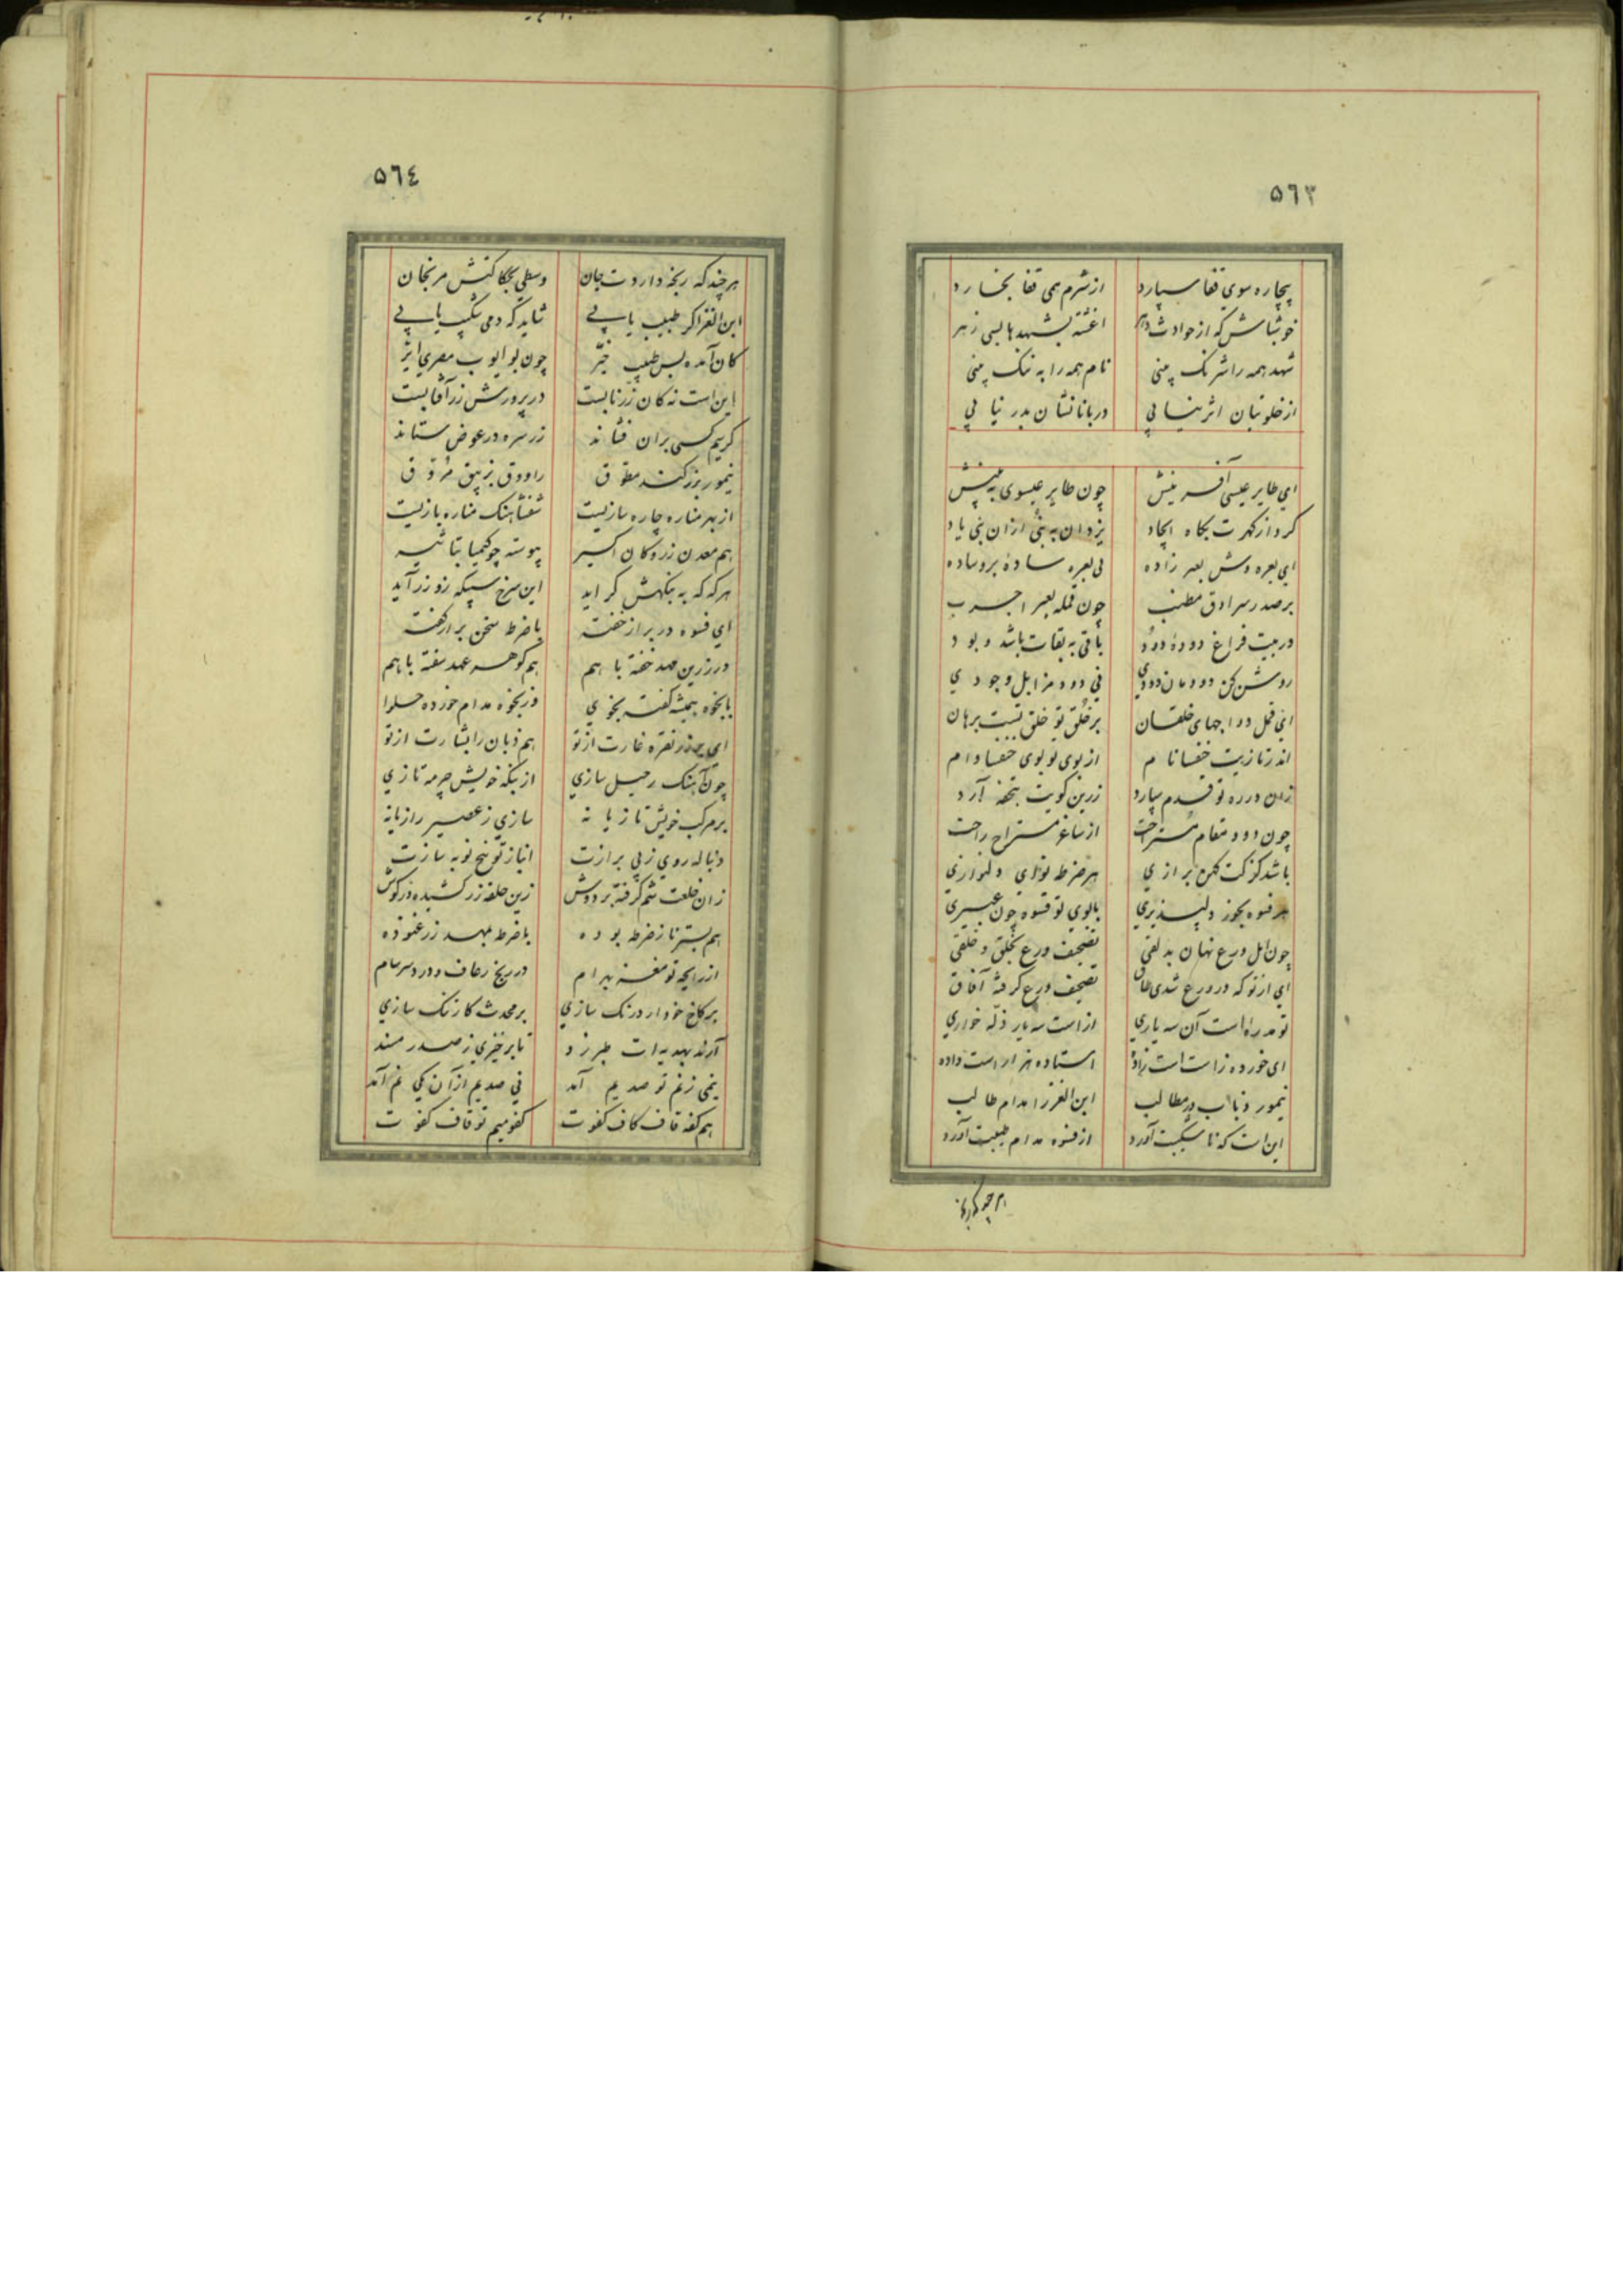 ٥٦٣
بیچاره سوی قفا سپارد از شرم همی قفا بخارد
خوش باش که از حوادث دهر اغشته بشهدها بسی زهر
شهد همه را شرنک بینی نام همه را به ننک بینی
از خلوتیان اثر نیابی دربانانشان بدر نیابی
ای طایر عیسی آفرینش چون طایر عیسوی به بینش
کرد از کهرت بکاه ایجاد یزدان به نبی ازان بنی یاد
ای بعره وش بعر زاده بی بعره ساده بر وساده
بر صدر سرادق مطنب چون قمله بعیر اجرب
در بیت فراغ دوده دود باقی به بقات باشد و بود
روشن کن دودمان دودی فی دود مزابل وجودی
بر خلق تو خلق تست برهان
اندر تازیت خنفسا نام از بوی تو بوی خنفسا وام
زان در ره تو قدم سپارد زرین کویت بتحفه آرد
چون دود مقام مستراحت از ساغر مستراح راحت
باشد کز کت کهن برازی هر ضرطه نوای دلنوازی
هر فسوه بجوز دلپذیری بابوی تو فسوه چون عبیری
چون اهل ورع نهان بدلقی تصحیف ورع بخلق و خلقی
ای ازتو که در ورع شدی طاق تصحیف ورع کرفته آفاق
تو مدره است آن سه یاری از است سه یار ذله خواری
ای خورده ز است است زاده استاده هزار است داده
تیمور و ناب در مطالب ابن الغرز مدام طالب
این است که نا سکیبت آورد از فسوه مدام طبیبت آورد
٥٦٤
هر چند که رنجه داردت جان وسطی بچکا کنش مرنجان
ابن الغرا کر طبیب یابی شاید که دمی شکیب یابی
کان آمده بس طبیب خیر چون بو ایوب مصری ایر
این است نه کان زر نابست در پرورش زر آفتابست
کریم کسی بران فشاند زر سره در عوض ستاند
تیمور بزر کند مطوق راووق بزیبق مروق
از بهر مناره چاره سازیست شفشاهنک مناره بازیست
هم معدن زر و کان اکسیر پیوسته چو کیمیا بتاثیر
هر که که به نکهش کراید این سرخ سبیکه زو زر آید
ای فسوه در براز خفته با ضرط سخن براز کفته
در زرین مهد خفته با هم هم کوهر عهد سفته با هم
بابخوه همیشه کفت بخوی وز بخوه مدام خورده حلوا
ای بر زر نقره غارت از تو هم ذبان را بشارت از تو
چون آهنک رحیل سازی از بنکه خویش چرمه تازی
بر مرکب خویش تازیانه سازی ز عصیر رازیانه
دنباله روی ز پی برازت انباز تو نخ نوبه سازت
زان خلعت شم کرفته بر دوش زین حلقه زر کشیده در کوش
هم بستر ناز ضرطه بوده با ضرطه بمهد زر غنوده
از رایحه تو مغز بهرام در رنج رعاف و درد سرسام
بر کاخ خود ار درنک سازی بر محدث کار تنک سازی
آرند بهدیه ات طبرزد تا برخیزی ز صدر مسند
نیمی ز غم تو صدیم آمد نی صدیم ازان یکی غم آمد
هم کفه قاف کاف کفوت کفو میم تو قاف کفوت